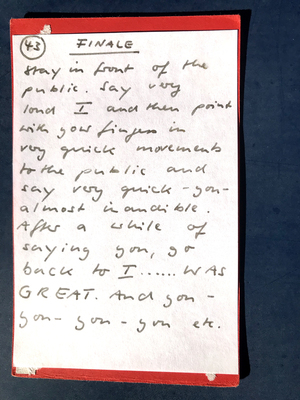 43 FINALE
Stay in front of the
public. Say very
loud I and then point
with your fingers in
very quick movements
to the public and
say very quick -you-
almost inaudible.
After a while of
saying you, go
back to I...... WAS
GREAT. And you -
you - you - you etc.